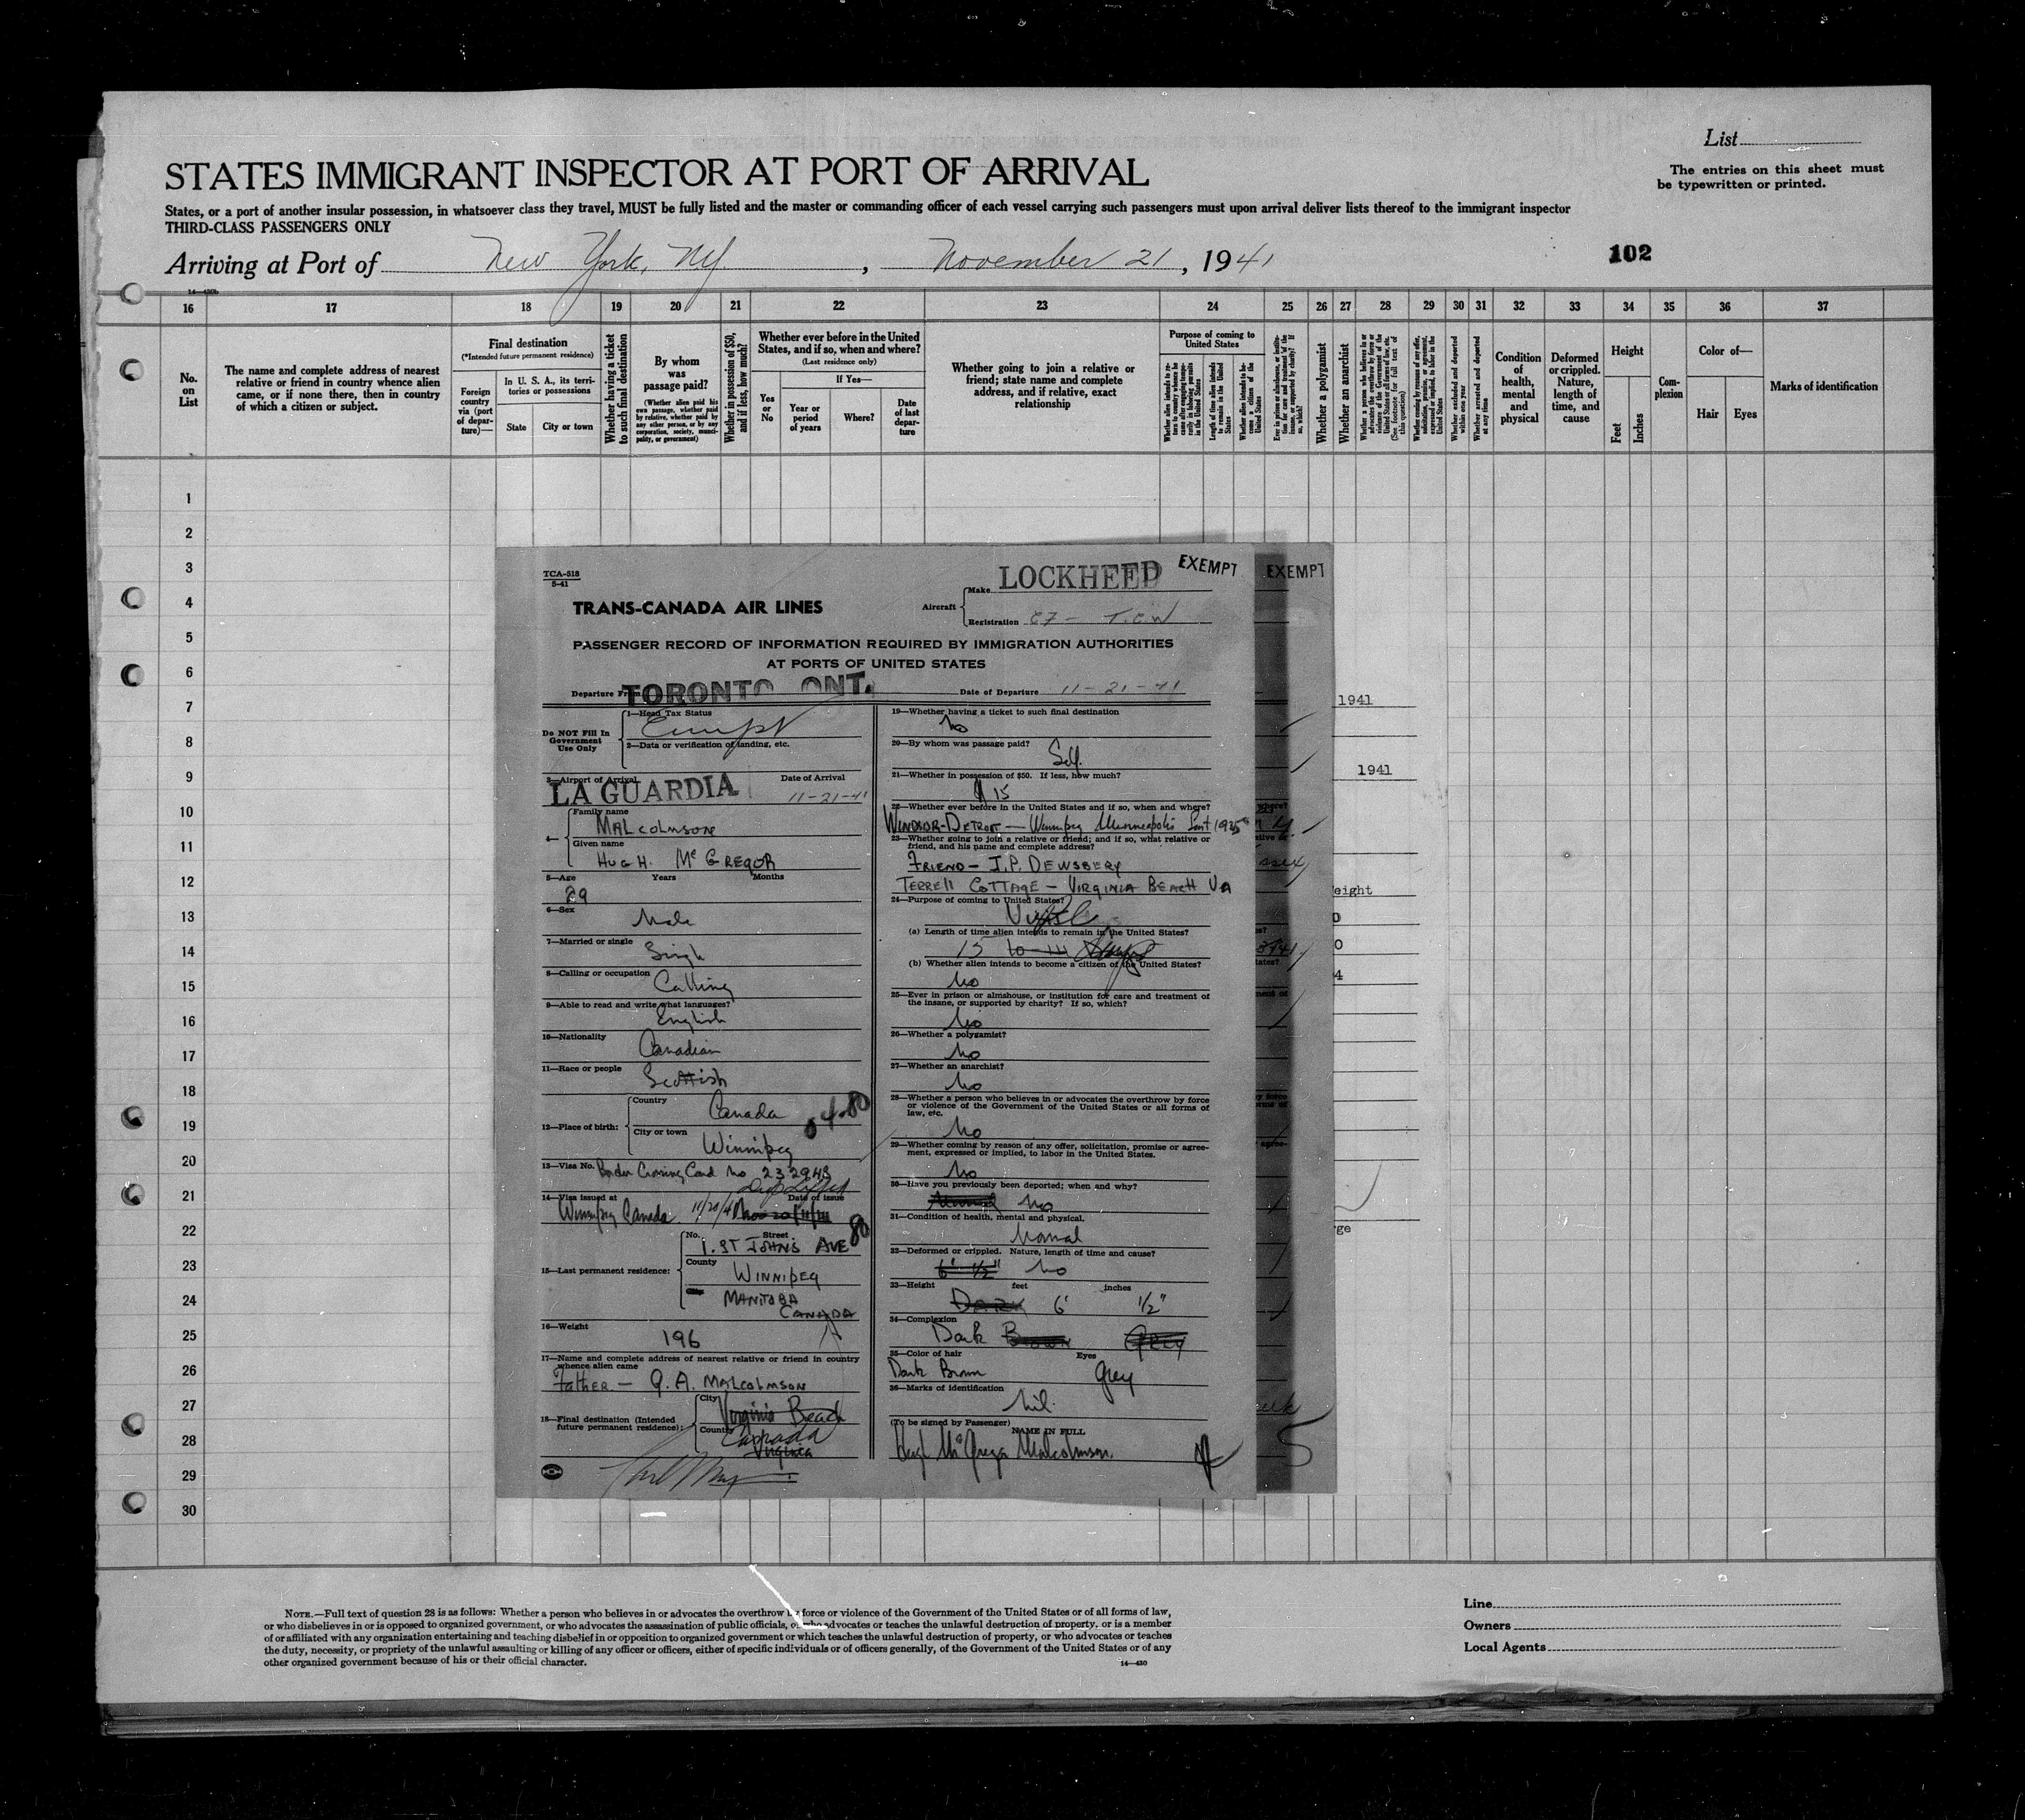 List
The entries on this sheet must
be typewritten or printed.
STATES IMMIGRANT INSPECTOR AT PORT OF ARRIVAL
States, or a port of another insular possession, in whatsoever class they travel, MUST be fully listed and the master or commanding officer of each vessel carrying such passengers must upon arrival deliver lists thereof to the immigrant inspector
THIRD-CLASS PASSENGERS ONLY
Arriving at Port of New York, NY. , November 21, 1941
102
16 17 18 19 20 21 22 23 24 25 26 27 28 29 30 31 32 33 34 35 36 37
No. on List
The name and complete address of nearest
relative or friend in country whence alien
came, or if none there, then in country
of which a citizen or subject.
Final destination
(*Intended future permanent residence)
Foreign country via (port of departure)—
In U. S. A., its territories or possessions
State
City or town
Whether having a ticket to such final destination
By whom was passage paid?
(Whether alien paid his own passage, whether paid by relative, whether paid by any other person, or by any corporation, society, municipality, or government)
Whether in possession of $50, and if less, how much?
Whether ever before in the United
States, and if so, when and where?
(Last residence only)
Yes or No
If Yes—
Year or period of years
Where?
Date of last departure
Whether going to join a relative or
friend; state name and complete
address, and if relative, exact
relationship
Purpose of coming to
United States
Length of time alien intends to remain in the United States
Whether alien intends to become a citizen of the United States
Whether a polygamist
Whether an anarchist
Whether excluded and deported within one year
Whether arrested and deported at any time
Condition of health, mental and physical
Deformed or crippled. Nature, length of time, and cause
Height
Feet
Inches
Complexion
Color of—
Hair
Eyes
Marks of identification
1
2
3
4
5
6
7
8
9
10
11
12
13
14
15
16
17
18
19
20
21
22
23
24
25
26
27
28
29
30
TCA-518
5-41
TRANS-CANADA AIR LINES
Aircraft
Make LOCKHEED
Registration CF- TCW
EXEMPT
EXEMPT
PASSENGER RECORD OF INFORMATION REQUIRED BY IMMIGRATION AUTHORITIES
AT PORTS OF UNITED STATES
Departure From TORONTO ONT.
Date of Departure 11-21-41
Do NOT Fill In
Government
Use Only
1—Head Tax Status
Exempt
2—Data or verification of landing, etc.
3—Airport of Arrival Date of Arrival
LA GUARDIA 11-21-41
4—
Family name
MALCOLMSON
Given name
HUGH. McGREGOR
5—Age Years Months
29
6—Sex
Male
7—Married or single
Single
8—Calling or occupation
9—Able to read and write what languages?
English
10—Nationality
Canadian
11—Race or people
Scottish
12—Place of birth:
Country
Canada
City or town
Winnipeg
13—Visa No. Border Crossing Card No 232943
14—Visa issued at Date of issue
Winnipeg Canada 11/20/41
15—Last permanent residence:
No. Street
1. ST JOHNS AVE
County
WINNIPEG
MANITOBA
CANADA
16—Weight
196
17—Name and complete address of nearest relative or friend in country
whence alien came
Father — G. A. MALCOLMSON
18—Final destination (Intended
future permanent residence):
City
Virginia Beach
County
Canada
Virginia
19—Whether having a ticket to such final destination
No
20—By whom was passage paid?
Self.
21—Whether in possession of $50. If less, how much?
$15
22—Whether ever before in the United States and if so, when and where?
WINDSOR-DETROIT — Winnipeg Minneapolis Sept 1925
23—Whether going to join a relative or friend; and if so, what relative or
friend, and his name and complete address?
FRIEND — J.P. DEWSBERY
TERRELL COTTAGE — VIRGINIA BEACH VA
24—Purpose of coming to United States?
(a) Length of time alien intends to remain in the United States?
15
(b) Whether alien intends to become a citizen of the United States?
No
25—Ever in prison or almshouse, or institution for care and treatment of
the insane, or supported by charity? If so, which?
No
26—Whether a polygamist?
No
27—Whether an anarchist?
No
28—Whether a person who believes in or advocates the overthrow by force
or violence of the Government of the United States or all forms of
law, etc.
No
29—Whether coming by reason of any offer, solicitation, promise or agree-
ment, expressed or implied, to labor in the United States.
No
30—Have you previously been deported; when and why?
No
31—Condition of health, mental and physical.
Normal
32—Deformed or crippled. Nature, length of time and cause?
6' ½" No
33—Height feet inches
Dark 6' ½"
34—Complexion
Dark Brown Grey
35—Color of hair Eyes
Dark Brown Grey
36—Marks of identification
Nil.
(To be signed by Passenger) NAME IN FULL
Hugh McGregor Malcolmson.
1941
1941
NOTE.—Full text of question 28 is as follows: Whether a person who believes in or advocates the overthrow by force or violence of the Government of the United States or of all forms of law,
or who disbelieves in or is opposed to organized government, or who advocates the assassination of public officials, or who advocates or teaches the unlawful destruction of property, or is a member
of or affiliated with any organization entertaining and teaching disbelief in or opposition to organized government or which teaches the unlawful destruction of property, or who advocates or teaches
the duty, necessity, or propriety of the unlawful assaulting or killing of any officer or officers, either of specific individuals or of officers generally, of the Government of the United States or of any
other organized government because of his or their official character.
14—430
Line
Owners
Local Agents